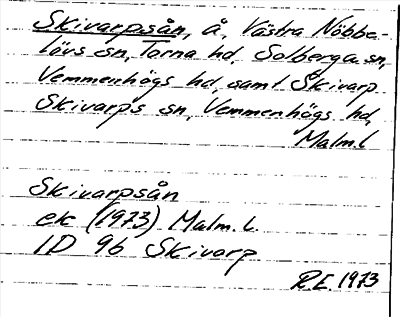 Skivarpsån, å, Västra Nöbbe-
lövs sn, Torna hd, Solberga sn,
Vemmenhögs hd, samt Skivarp
Skivarps sn, Vemmenhögs hd,
Malm.l
Skivarpsån
ek (1973) Malm.l.
1D 9b Skivarp
R.E. 1973